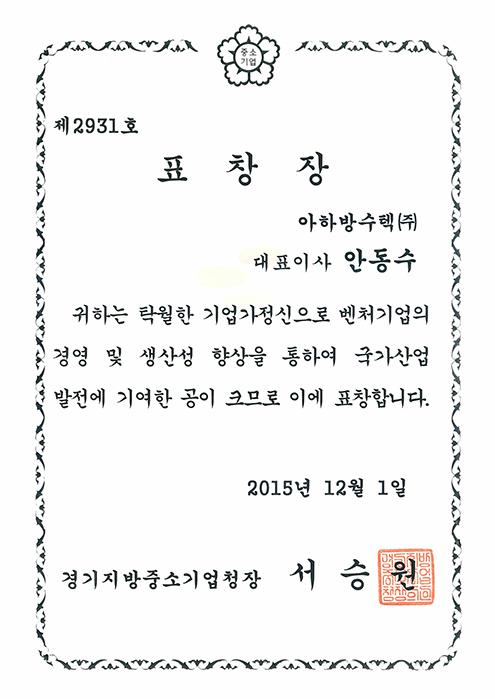 중소
기업
제2931호
표 창 장
아하방수텍(주)
대표이사 안동수
귀하는 탁월한 기업가정신으로 벤처기업의
경영 및 생산성 향상을 통하여 국가산업
발전에 기여한 공이 크므로 이에 표창합니다.
2015년 12월 1일
경기지방중소기업청장 서 승 원